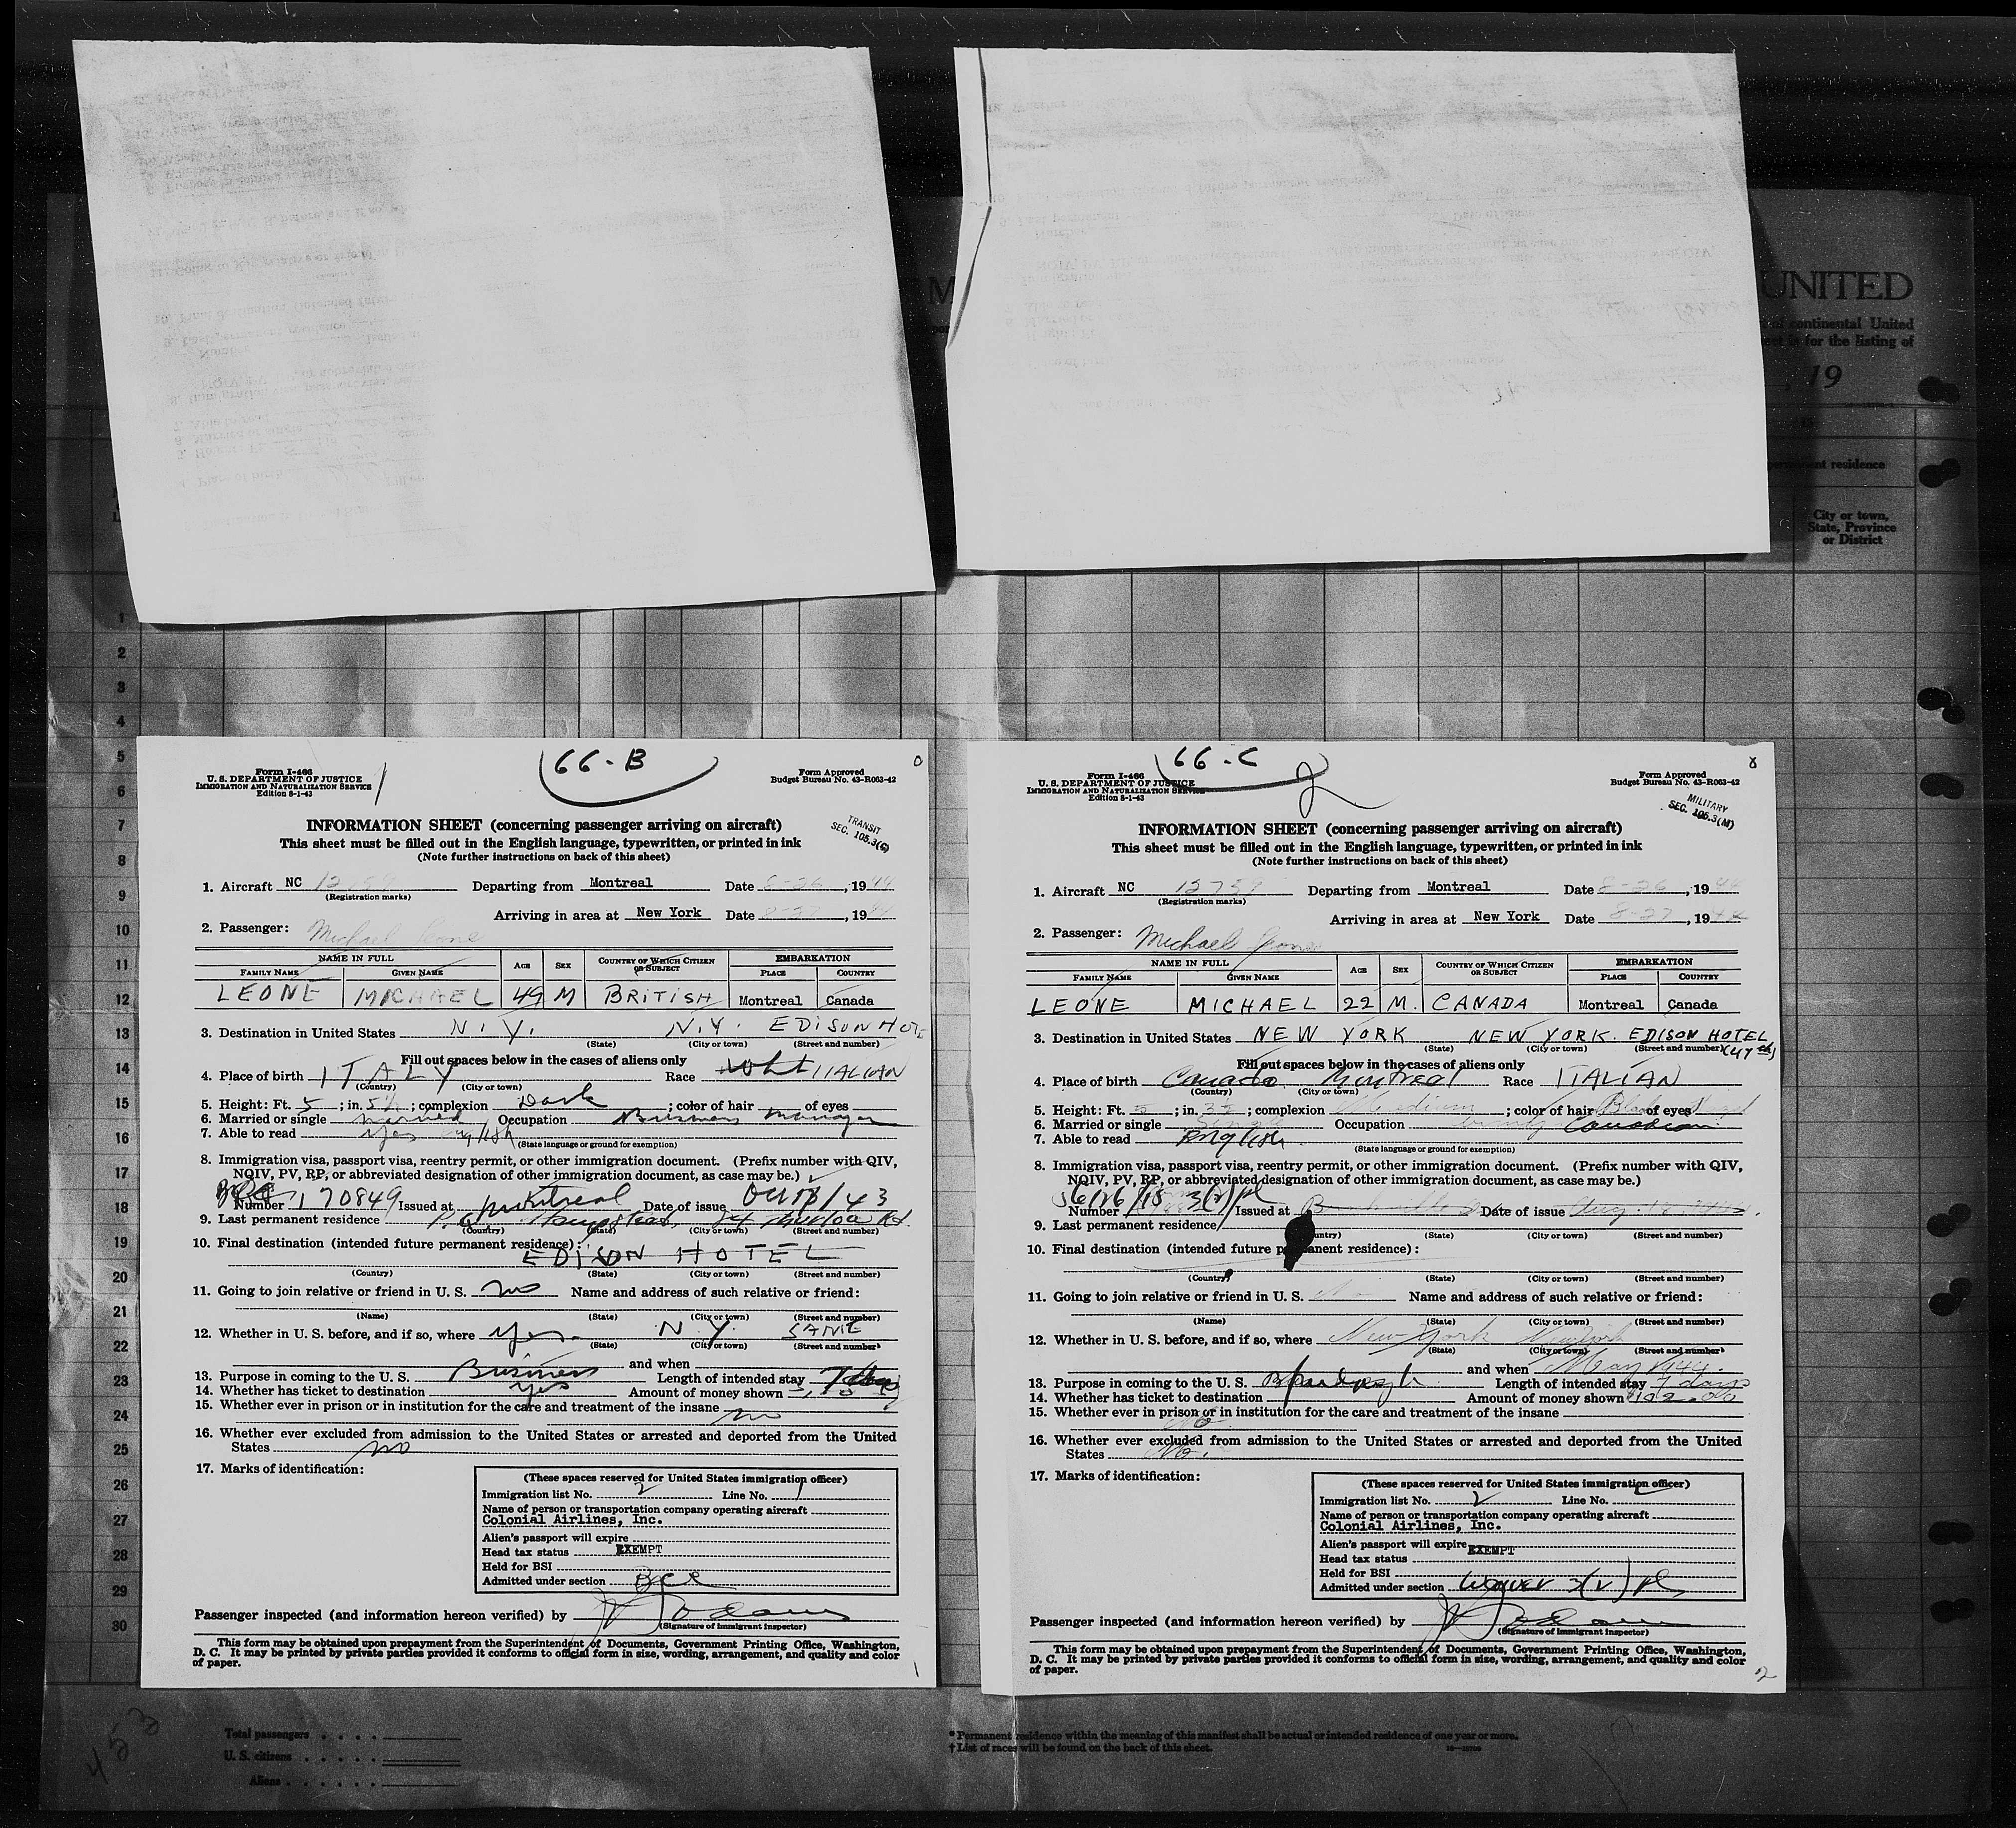 UNITED
continental United
for the listing of
, 19
residence
City or town,
State, Province
or District
1
2
3
4
5
6
7
8
9
10
11
12
13
14
15
16
17
18
19
20
21
22
23
24
25
26
27
28
29
30
66-B
Form I-466
U. S. DEPARTMENT OF JUSTICE
IMMIGRATION AND NATURALIZATION SERVICE
Edition 8-1-43
Form Approved
Budget Bureau No. 43-R063-42
TRANSIT
SEC. 105.3(G)
INFORMATION SHEET (concerning passenger arriving on aircraft)
This sheet must be filled out in the English language, typewritten, or printed in ink
(Note further instructions on back of this sheet)
1. Aircraft NC 12759 Departing from Montreal Date 8-26, 1944
(Registration marks)
Arriving in area at New York Date 8-27, 1944
2. Passenger: Michael Leone
NAME IN FULL AGE SEX COUNTRY OF WHICH CITIZEN OR SUBJECT EMBARKATION
FAMILY NAME GIVEN NAME PLACE COUNTRY
LEONE MICHAEL 49 M BRITISH Montreal Canada
3. Destination in United States N.Y. N.Y. EDISON HOTE
(State) (City or town) (Street and number)
Fill out spaces below in the cases of aliens only
4. Place of birth ITALY Race ITALIAN
(Country) (City or town)
5. Height: Ft. 5; in. 5½; complexion Dark; color of hair of eyes
6. Married or single married Occupation Business Manager
7. Able to read yes English
(State language or ground for exemption)
8. Immigration visa, passport visa, reentry permit, or other immigration document. (Prefix number with QIV,
NQIV, PV, RP, or abbreviated designation of other immigration document, as case may be.)
Number 170849 Issued at Montreal Date of issue /43
9. Last permanent residence Hampstead,
(Country) (State) (City or town) (Street and number)
10. Final destination (intended future permanent residence):
EDISON HOTEL
(Country) (State) (City or town) (Street and number)
11. Going to join relative or friend in U. S. no Name and address of such relative or friend:
(Name) (State) (City or town) (Street and number)
12. Whether in U. S. before, and if so, where yes N.Y. SAME
(State) (City or town) (Street and number)
and when
13. Purpose in coming to the U. S. Business Length of intended stay
14. Whether has ticket to destination yes Amount of money shown
15. Whether ever in prison or in institution for the care and treatment of the insane
no
16. Whether ever excluded from admission to the United States or arrested and deported from the United
States no
17. Marks of identification:
(These spaces reserved for United States immigration officer)
Immigration list No. 2 Line No. 1
Name of person or transportation company operating aircraft
Colonial Airlines, Inc.
Alien's passport will expire
Head tax status EXEMPT
Held for BSI
Admitted under section
Passenger inspected (and information hereon verified) by
(Signature of immigrant inspector)
This form may be obtained upon prepayment from the Superintendent of Documents, Government Printing Office, Washington,
D. C. It may be printed by private parties provided it conforms to official form in size, wording, arrangement, and quality and color
of paper.
1
66-C
2
Form I-466
U. S. DEPARTMENT OF JUSTICE
IMMIGRATION AND NATURALIZATION SERVICE
Edition 8-1-43
Form Approved
Budget Bureau No. 43-R063-42
MILITARY
SEC. 105.3(M)
INFORMATION SHEET (concerning passenger arriving on aircraft)
This sheet must be filled out in the English language, typewritten, or printed in ink
(Note further instructions on back of this sheet)
1. Aircraft NC 12759 Departing from Montreal Date 8-26, 1944
(Registration marks)
Arriving in area at New York Date 8-27, 1944
2. Passenger: Michael Leone
NAME IN FULL AGE SEX COUNTRY OF WHICH CITIZEN OR SUBJECT EMBARKATION
FAMILY NAME GIVEN NAME PLACE COUNTRY
LEONE MICHAEL 22 M. CANADA Montreal Canada
3. Destination in United States NEW YORK NEW YORK. EDISON HOTEL
(State) (City or town) (Street and number) (47th)
Fill out spaces below in the cases of aliens only
4. Place of birth Canada Montreal Race ITALIAN
(Country) (City or town)
5. Height: Ft. 5; in. 3½; complexion Medium; color of hair Black of eyes
6. Married or single Single Occupation Canadian
7. Able to read English
(State language or ground for exemption)
8. Immigration visa, passport visa, reentry permit, or other immigration document. (Prefix number with QIV,
NQIV, PV, RP, or abbreviated designation of other immigration document, as case may be.)
Number Issued at Date of issue
9. Last permanent residence
(State) (City or town) (Street and number)
10. Final destination (intended future permanent residence):
(Country) (State) (City or town) (Street and number)
11. Going to join relative or friend in U. S. No Name and address of such relative or friend:
(Name) (State) (City or town) (Street and number)
12. Whether in U. S. before, and if so, where New York New York
(State) (City or town) (Street and number)
and when May 1944.
13. Purpose in coming to the U. S. Length of intended stay 7 days
14. Whether has ticket to destination Amount of money shown
15. Whether ever in prison or in institution for the care and treatment of the insane
No
16. Whether ever excluded from admission to the United States or arrested and deported from the United
States No.
17. Marks of identification:
(These spaces reserved for United States immigration officer)
Immigration list No. 2 Line No. 2
Name of person or transportation company operating aircraft
Colonial Airlines, Inc.
Alien's passport will expire
Head tax status EXEMPT
Held for BSI
Admitted under section
Passenger inspected (and information hereon verified) by
(Signature of immigrant inspector)
This form may be obtained upon prepayment from the Superintendent of Documents, Government Printing Office, Washington,
D. C. It may be printed by private parties provided it conforms to official form in size, wording, arrangement, and quality and color
of paper.
2
453
Total passengers
U. S. citizens
Aliens
* Permanent residence within the meaning of this manifest shall be actual or intended residence of one year or more.
† List of races will be found on the back of this sheet.